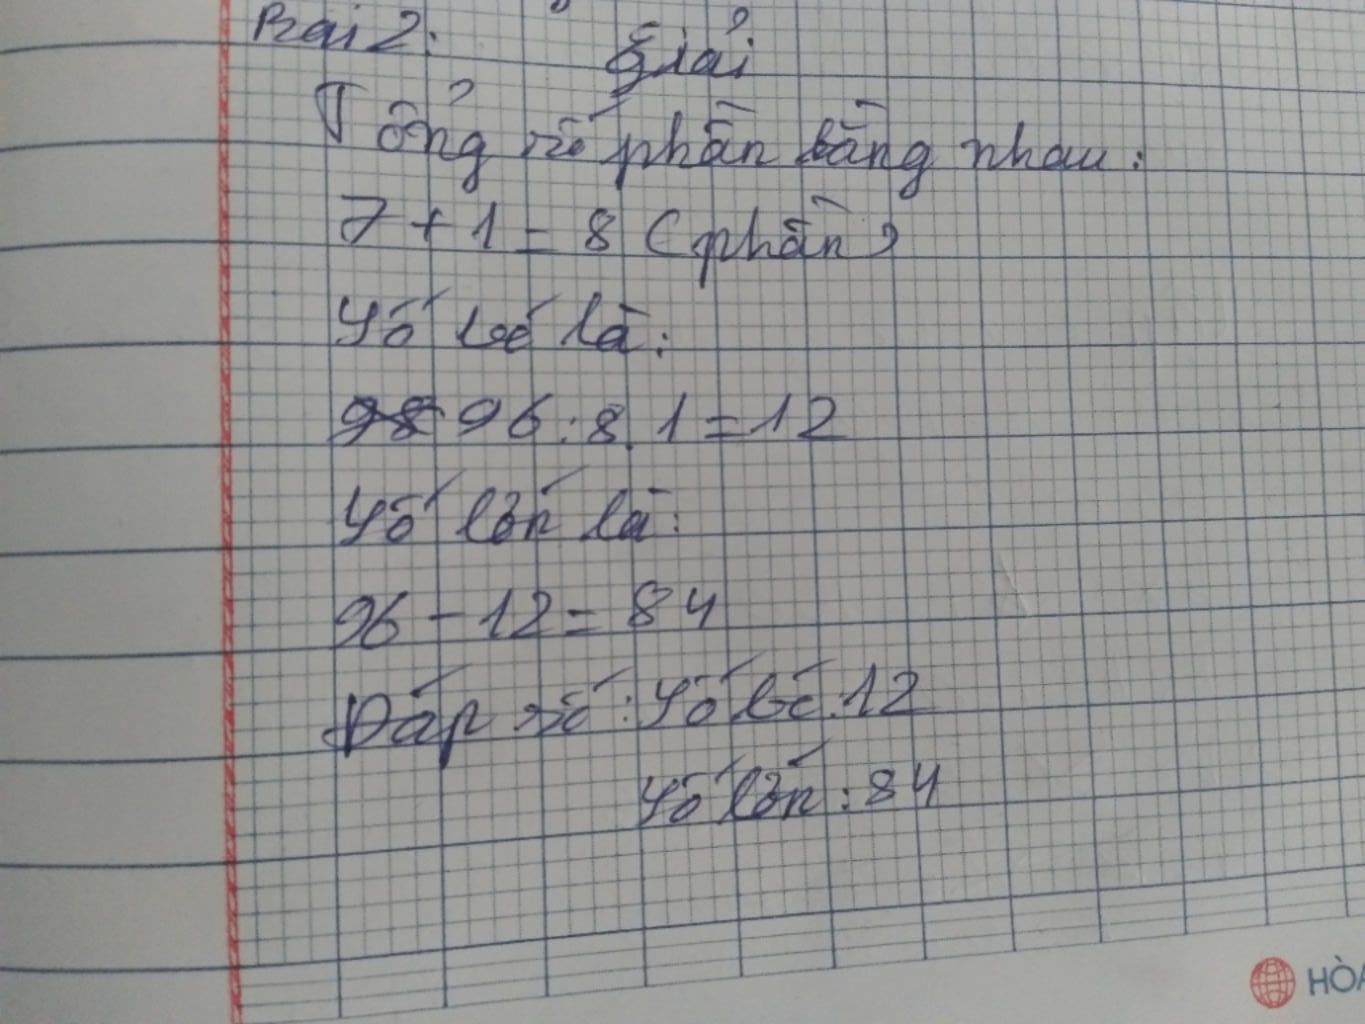 Bài 2:
Giải
Tổng số phần bằng nhau:
7 + 1 = 8 (phần)
Số bé là:
96 : 8 . 1 = 12
Số lớn là:
96 - 12 = 84
Đáp số : Số bé : 12
Số lớn : 84
HÒA